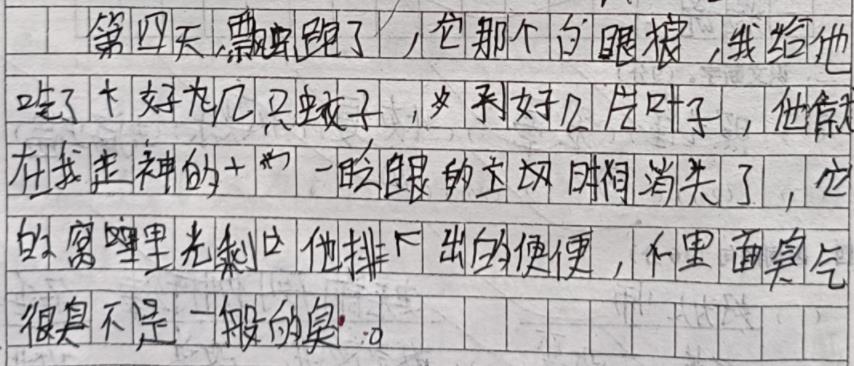 第四天,瓢虫跑了,它那个白眼狼,我给他
吃了大好几只蚊子,少则好几片叶子,他就
在我走神的一眨眼的立刻时间消失了,它
的窝里光剩他排出的便便,里面臭气
很臭不是一般的臭。